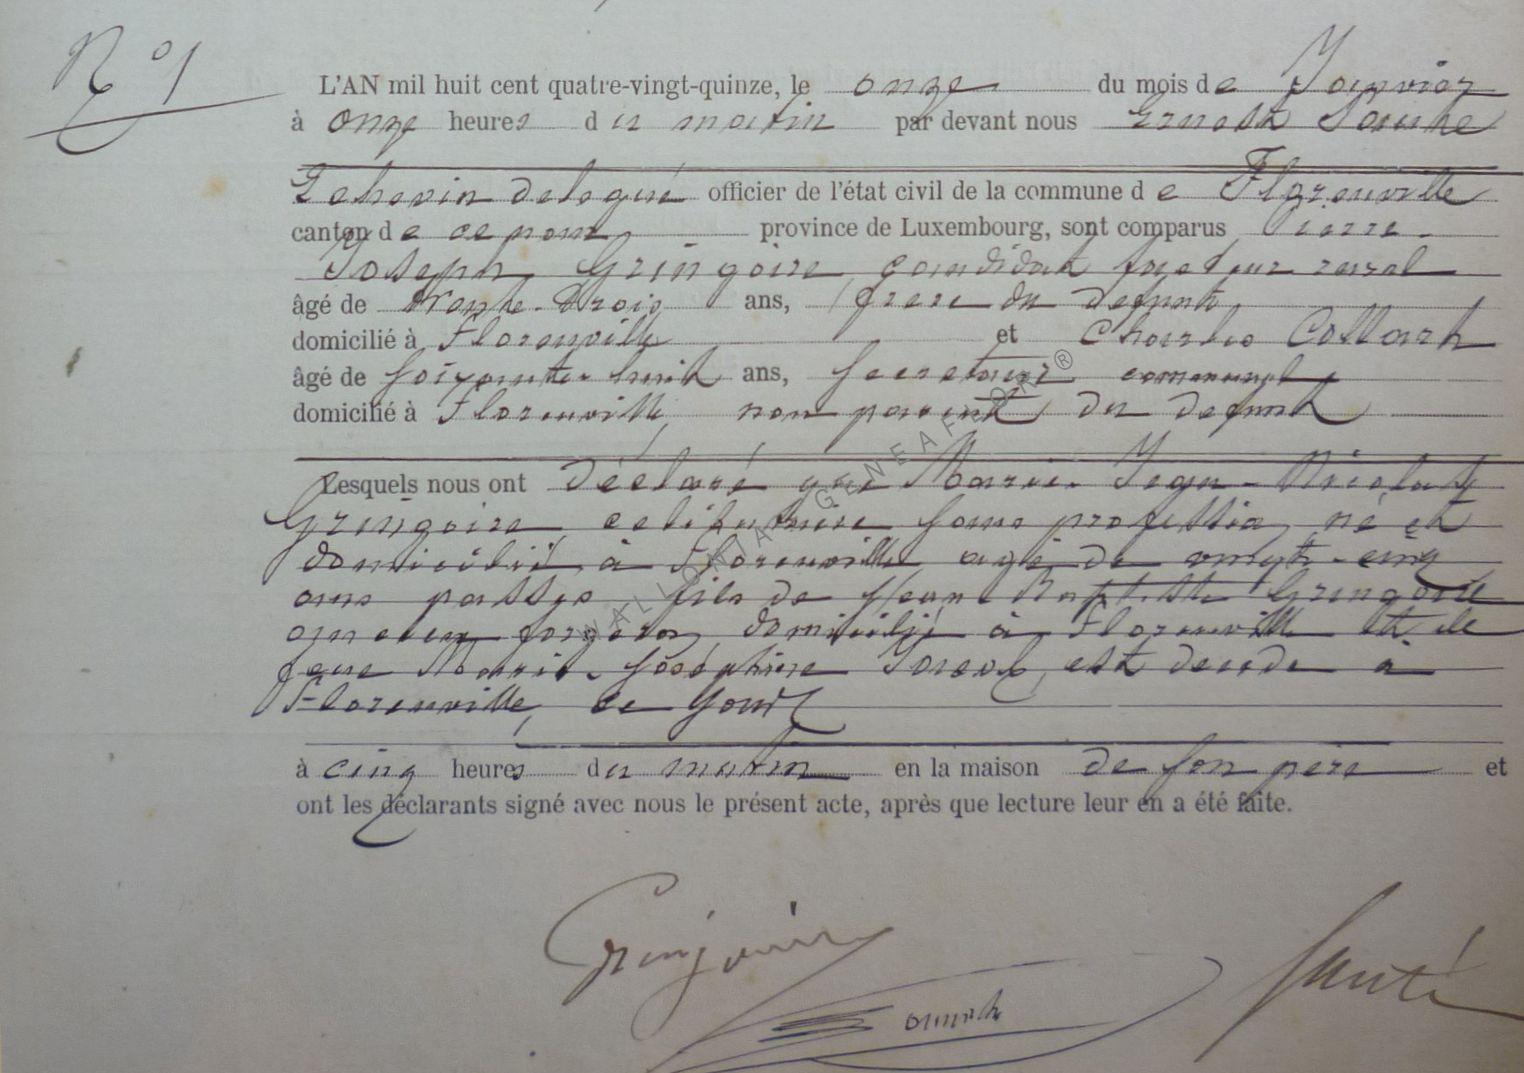 N° 1
L'AN mil huit cent quatre-vingt-quinze, le onze du mois de Janvier
à onze heures du matin par devant nous Ernest
Echevin delegué officier de l'état civil de la commune de Florenville
canton de ce nom province de Luxembourg, sont comparus Pierre-
Joseph Gringoire candidat facteur rural
âgé de trente-trois ans, frere du defunt
domicilié à Florenville et Charles Collart
âgé de soixante-huit ans, secretaire communal
domicilié à Florenville non parent du defunt
Lesquels nous ont déclaré que Marie-Jean-Nicolas
Gringoire celibataire sans profession, né et
domicilié à Florenville agé de vingt-cinq
ans passés fils de Jean-Baptiste Gringoire
ancien forgeron, domicilié à Florenville et de
feue Marie-Joséphine est decede à
Florenville, ce jour
à cinq heures du matin en la maison de son père et
ont les déclarants signé avec nous le présent acte, après que lecture leur en a été faite.
WALLONIA GENEAFRON ®
Gringoire